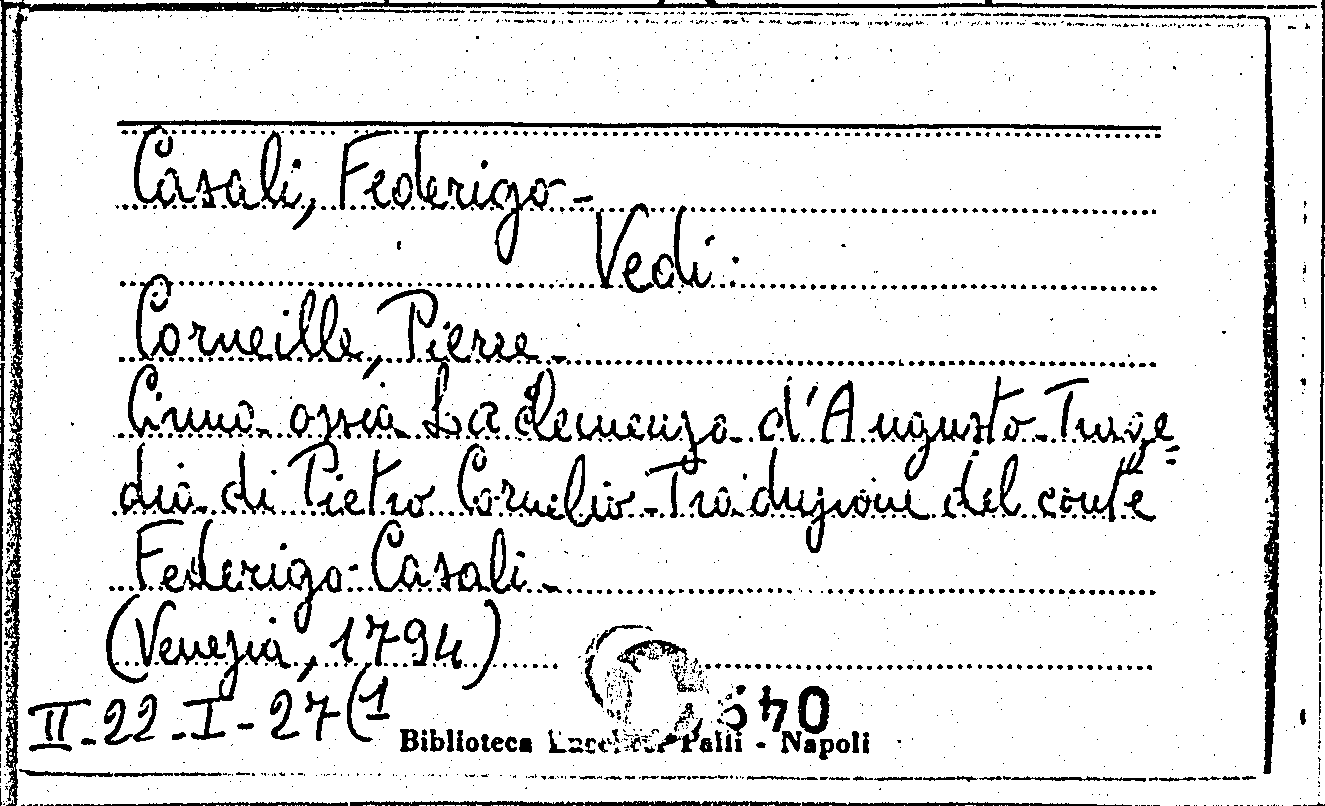 Casali, Federigo -
Vedi:
Corneille, Pierre -
Cinna ossia La clemenza d'Augusto - Trage=
dia di Pietro Cornelio - Traduzione del conte
Federigo Casali -
(Venezia, 1794)
II-22-I-27(1
Biblioteca Palli - Napoli